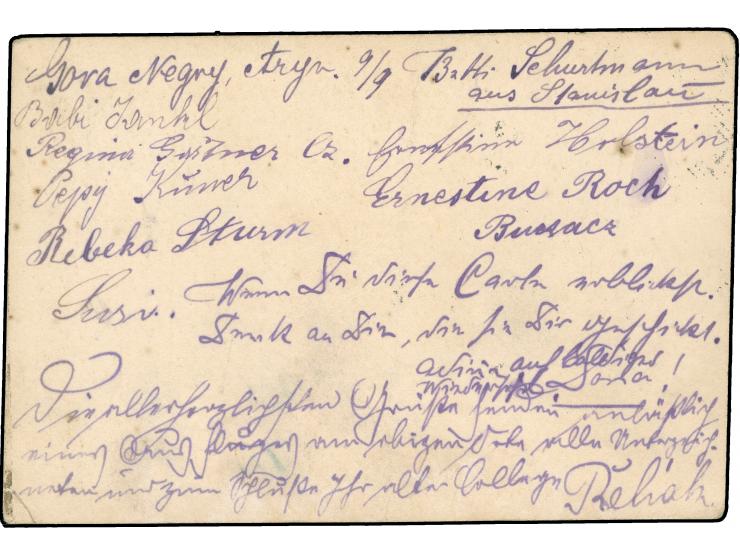 Gora Negry, 9/9 Betti Schurtmann
aus Stanislau
Babi Jankl
Regina Gärtner Cz. Ernestine Holstein
Pepy Kuner Ernestine Roch
Rebeka Sturm Buczacz
Susi. Wenn Du diese Carte erblickst.
Denk an Die, die sie Dir geschickt.
auf baldiges
Wiedersehen Dora!
Die allerherzlichsten Grüße senden anläßlich
eines Ausfluges am obigen Orte alle Unterzeich-
neten und zum Schluße Ihr alter Collega Rehak.